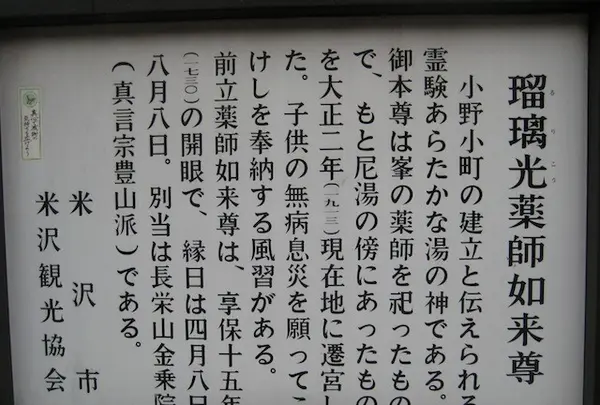 瑠璃光薬師如来尊
るりこう
小野小町の建立と伝えられる
霊験あらたかな湯の神である。
御本尊は峯の薬師を祀ったもの
で、もと尼湯の傍にあったもの
を大正二年(一九一三)現在地に遷宮し
た。子供の無病息災を願ってこ
けしを奉納する風習がある。
前立薬師如来尊は、享保十五年
(一七三〇)の開眼で、縁日は四月八日
八月八日。別当は長栄山金乗院
(真言宗豊山派)である。
米沢市
米沢観光協会